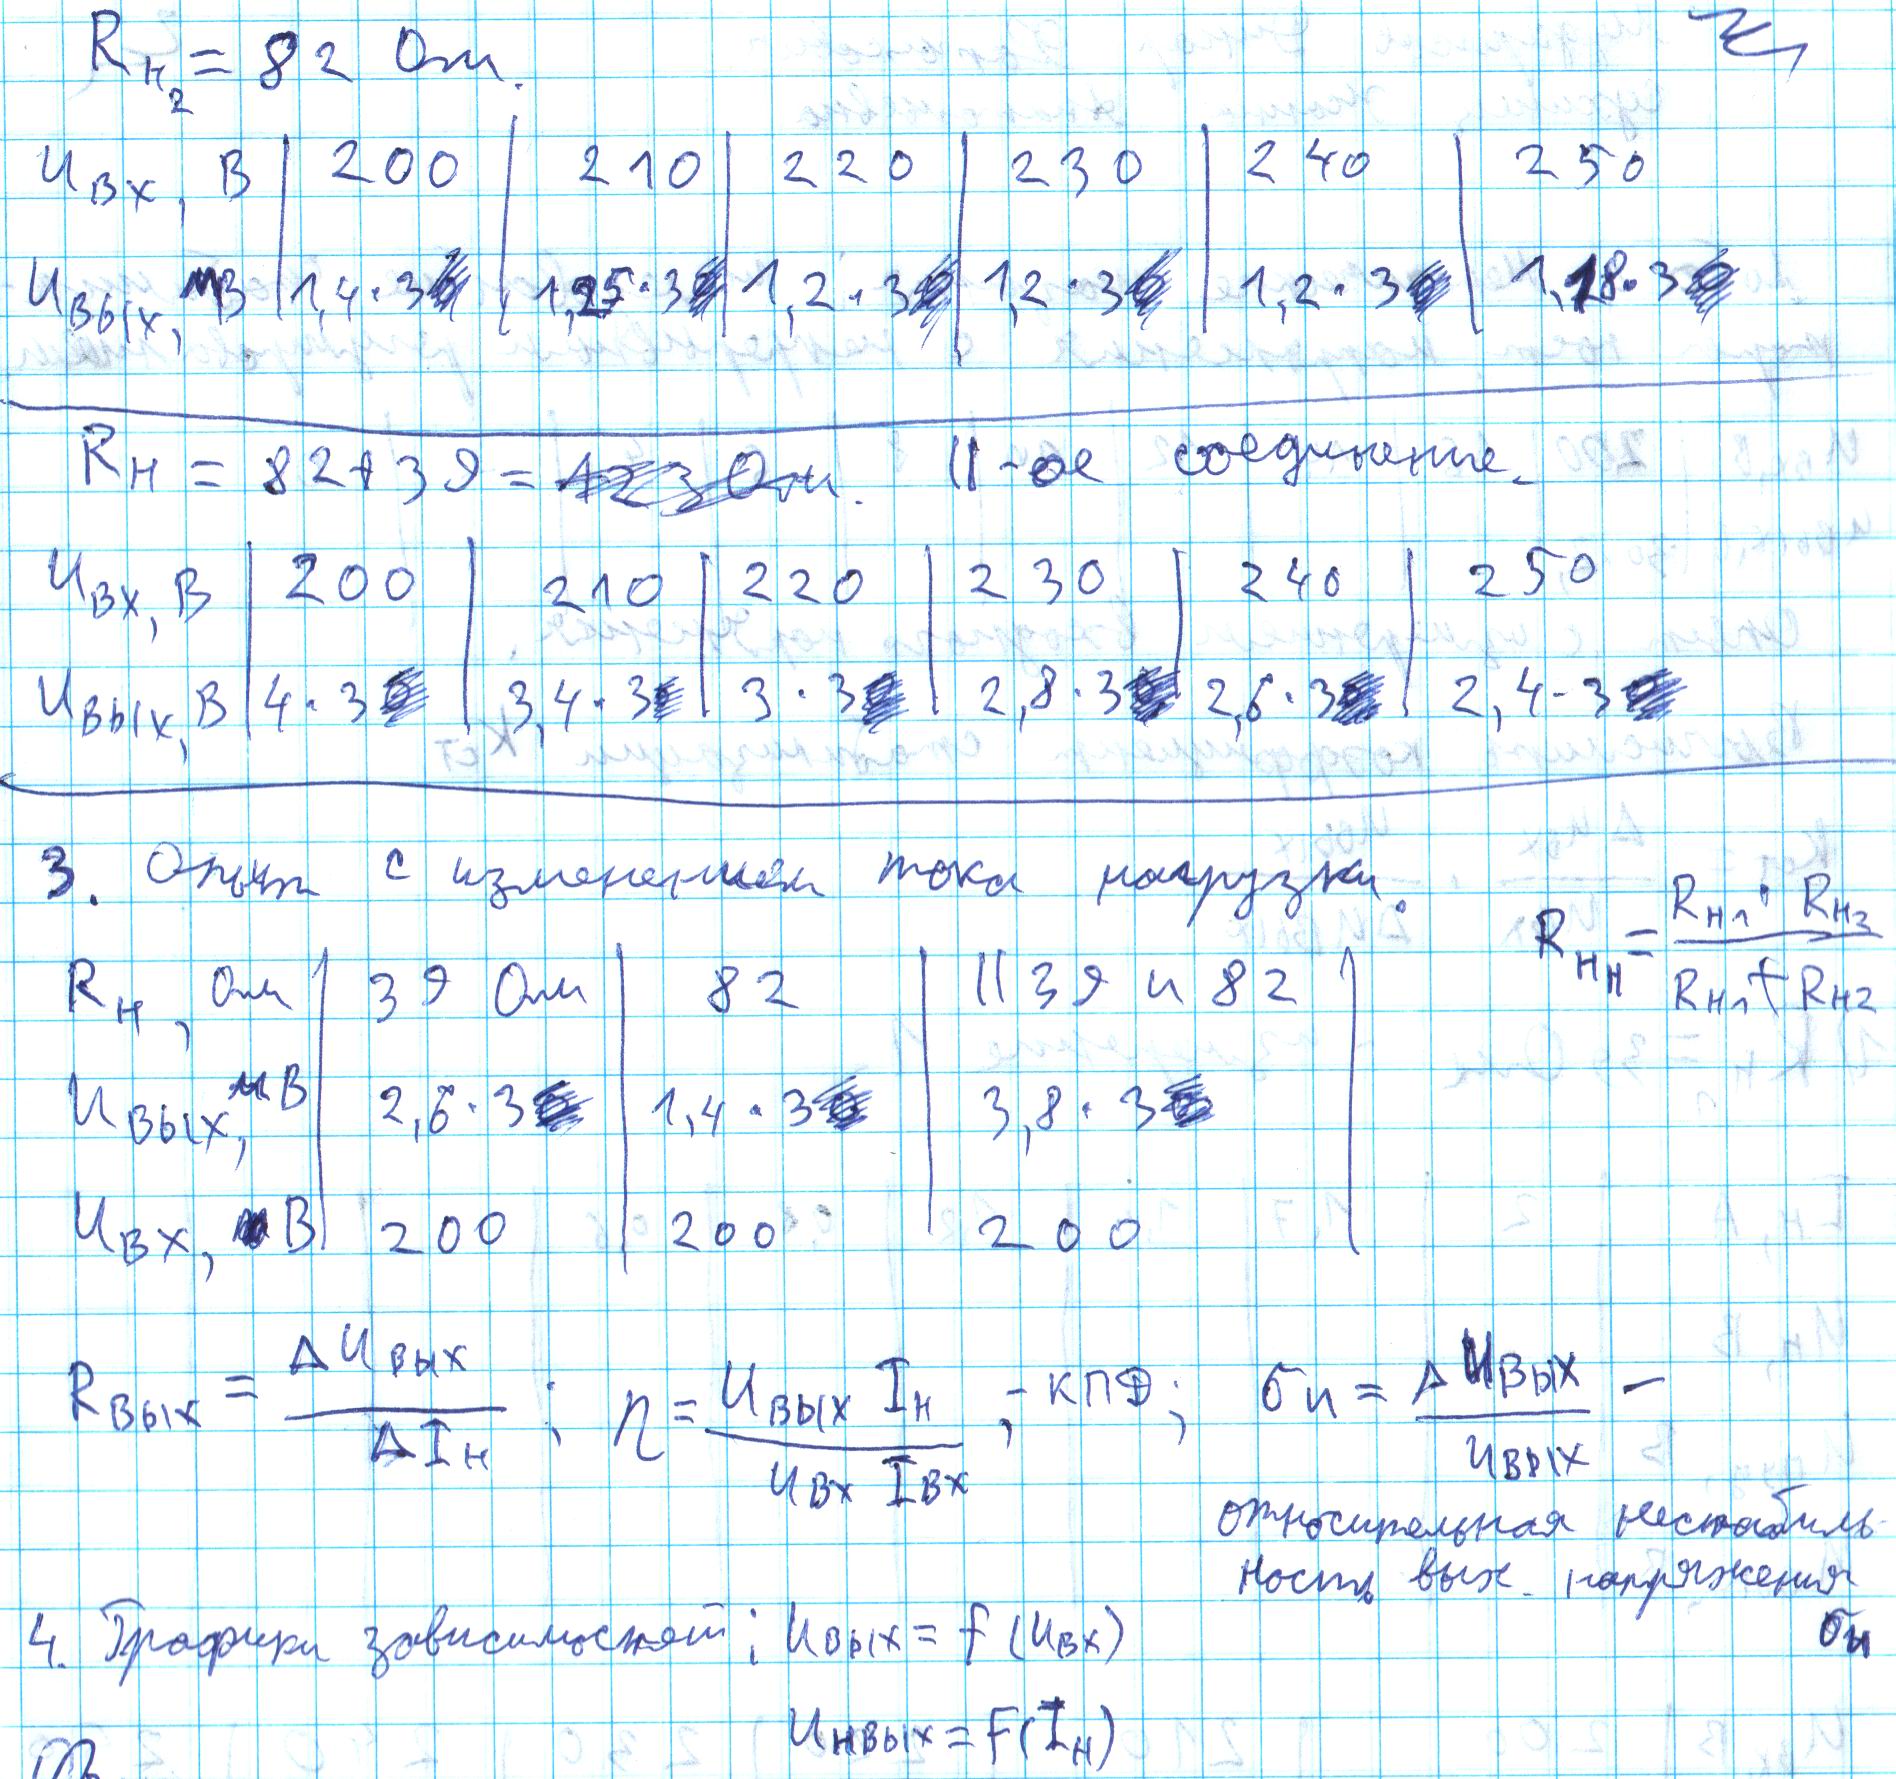 Rн2 = 82 Ом.
Uвх, В | 200 | 210 | 220 | 230 | 240 | 250
Uвых, мВ | 1,4·3 | 1,25·3 | 1,2·3 | 1,2·3 | 1,2·3 | 1,18·3
Rн = 82+39 = 123 Ом. ||-ое соединение.
Uвх, В | 200 | 210 | 220 | 230 | 240 | 250
Uвых, В | 4·3 | 3,4·3 | 3·3 | 2,8·3 | 2,6·3 | 2,4·3
3. Опыт с изменением тока нагрузки.
Rнн = Rн1 · Rн2 / Rн1 + Rн2
Rн, Ом | 39 Ом | 82 | || 39 и 82 |
Uвых, мВ | 2,6·3 | 1,4·3 | 3,8·3
Uвх, В | 200 | 200 | 200
Rвых = ΔUвых / ΔIн ; η = Uвых Iн / Uвх Iвх , - КПД; σн = ΔUвых / Uвых –
относительная нестабиль-
ность вых. напряжения
σн
4. Графики зависимостей; Uвых = f (Uвх)
Uнвых = f (Iн)